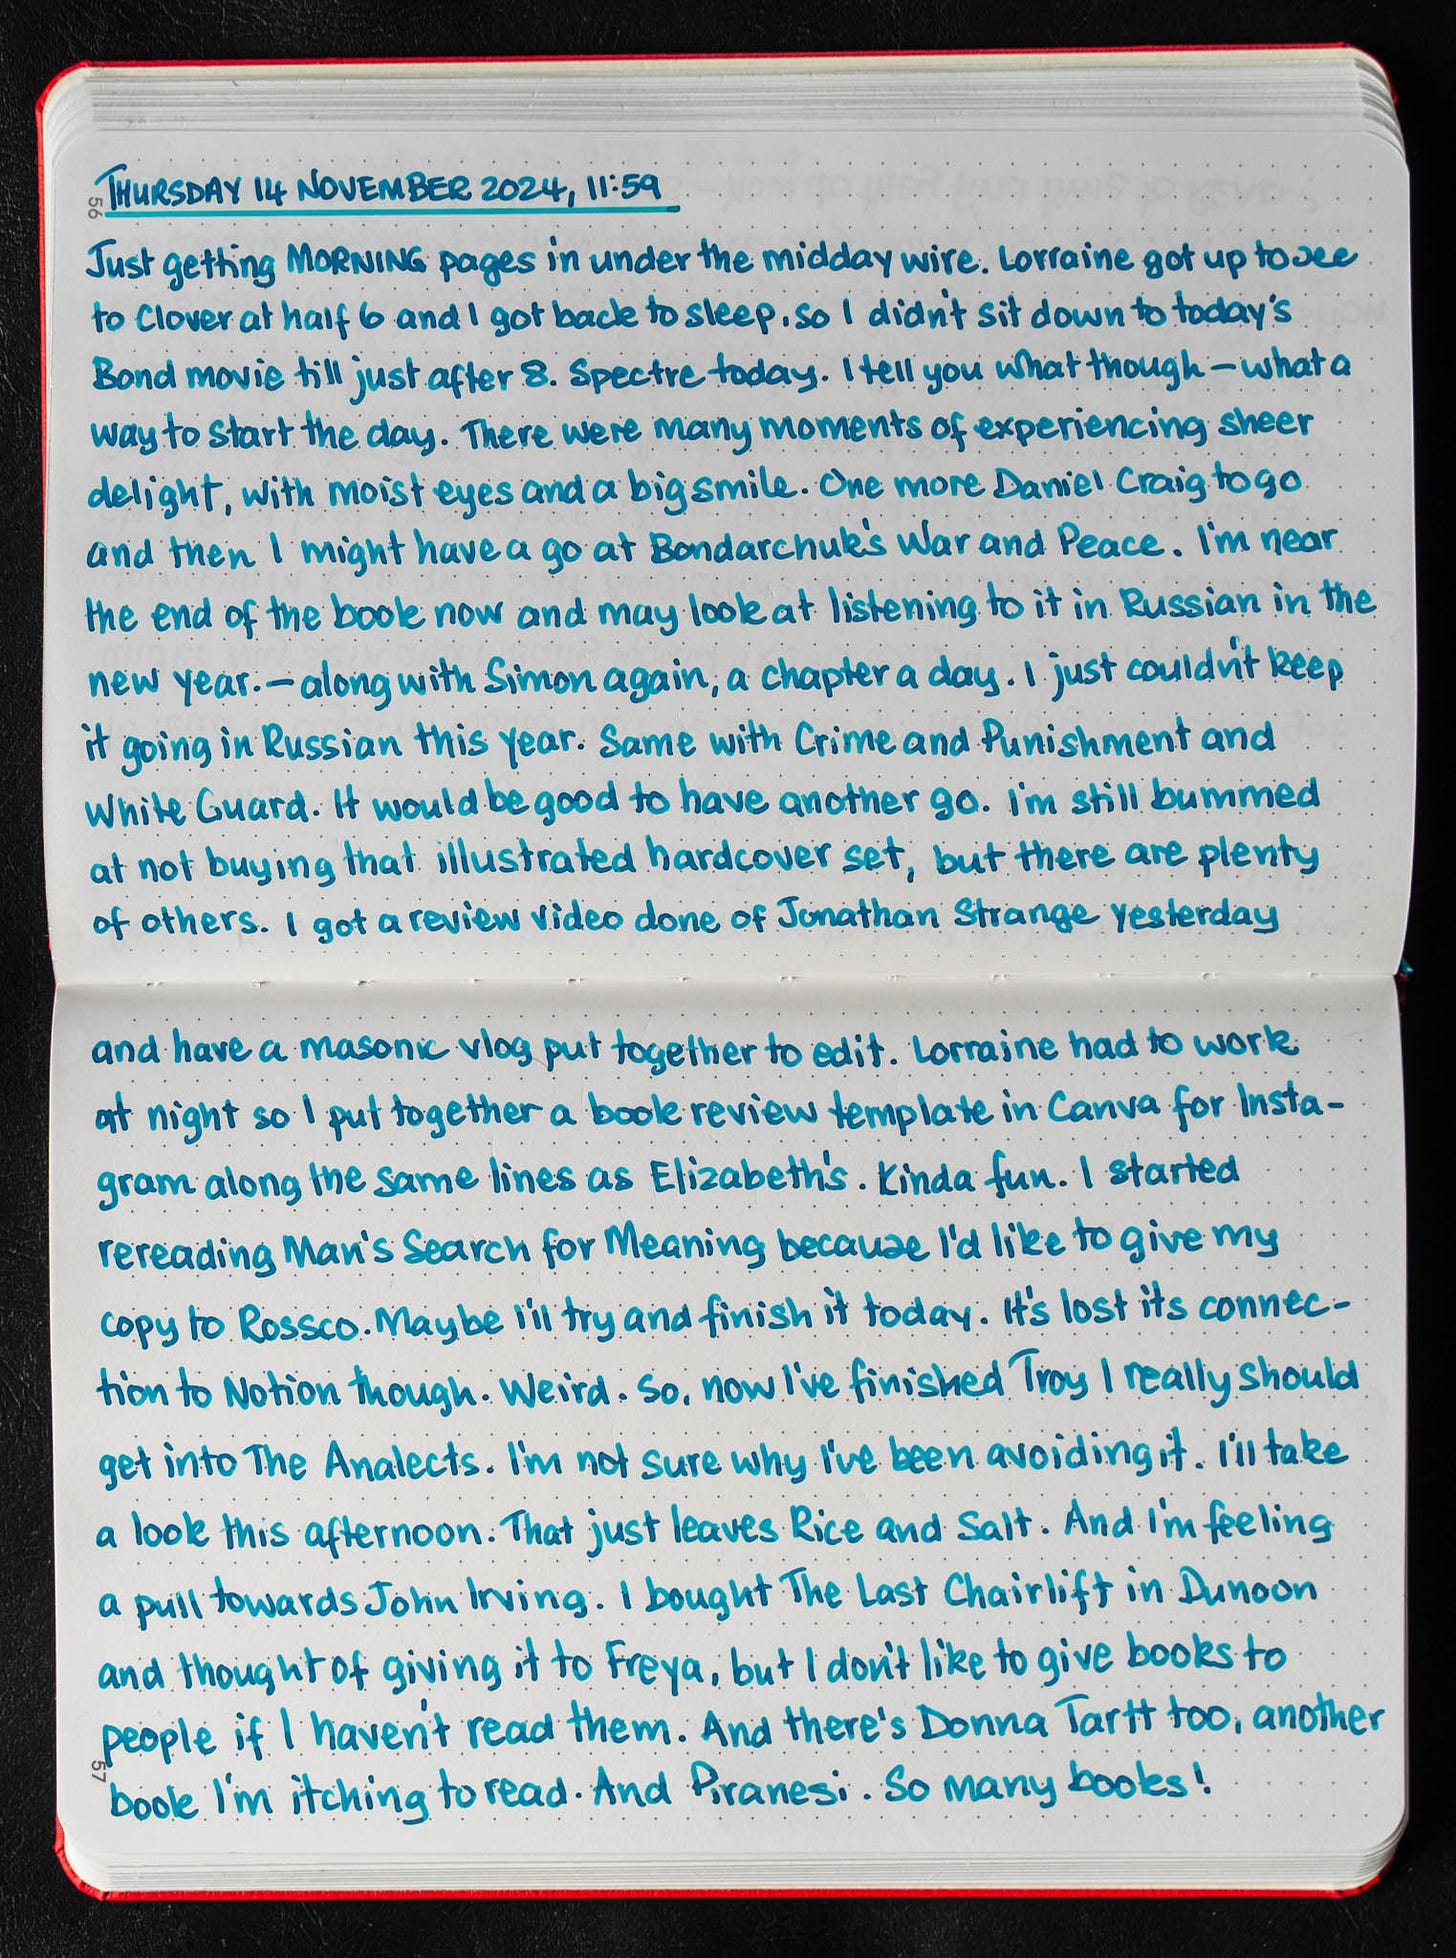 THURSDAY 14 NOVEMBER 2024, 11:59
56
Just getting MORNING pages in under the midday wire. Lorraine got up to see
to Clover at half 6 and I got back to sleep, so I didn't sit down to today's
Bond movie till just after 8. Spectre today. I tell you what though – what a
way to start the day. There were many moments of experiencing sheer
delight, with moist eyes and a big smile. One more Daniel Craig to go
and then I might have a go at Bondarchuk's War and Peace. I'm near
the end of the book now and may look at listening to it in Russian in the
new year. – along with Simon again, a chapter a day. I just couldn't keep
it going in Russian this year. Same with Crime and Punishment and
White Guard. It would be good to have another go. I'm still bummed
at not buying that illustrated hardcover set, but there are plenty
of others. I got a review video done of Jonathan Strange yesterday
and have a masonic vlog put together to edit. Lorraine had to work
at night so I put together a book review template in Canva for Insta-
gram along the same lines as Elizabeth's. Kinda fun. I started
rereading Man's Search for Meaning because I'd like to give my
copy to Rossco. Maybe I'll try and finish it today. It's lost its connec-
tion to Notion though. Weird. So, now I've finished Troy I really should
get into The Analects. I'm not sure why I've been avoiding it. I'll take
a look this afternoon. That just leaves Rice and Salt. And I'm feeling
a pull towards John Irving. I bought The Last Chairlift in Dunoon
and thought of giving it to Freya, but I don't like to give books to
people if I haven't read them. And there's Donna Tartt too, another
book I'm itching to read. And Piranesi. So many books!
57